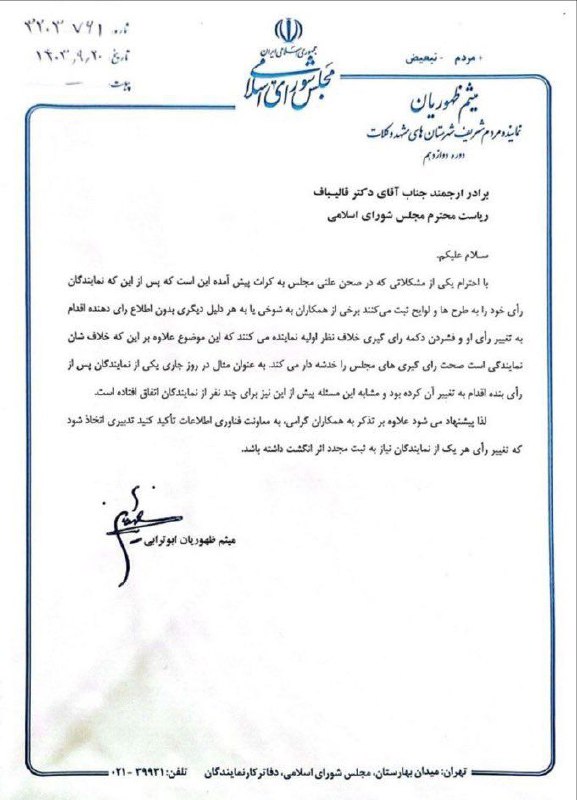 جمهوری اسلامی ایران
مجلس شورای اسلامی
شماره: ۳۲۰۳۷۶۱
تاریخ: ۱۴۰۳,۹,۲۰
پیوست: —
میثم ظهوریان
نماینده مردم شریف شهرستان های مشهد و کلات
دوره دوازدهم
برادر ارجمند جناب آقای دکتر قالیباف
ریاست محترم مجلس شورای اسلامی
سلام علیکم.
با احترام یکی از مشکلاتی که در صحن علنی مجلس به کرات پیش آمده این است که پس از این که نمایندگان
رأی خود را به طرح ها و لوایح ثبت می‌کنند برخی از همکاران به شوخی یا به هر دلیل دیگری بدون اطلاع رای دهنده اقدام
به تغییر رأی او و فشردن دکمه رای گیری خلاف نظر اولیه نماینده می کنند که این موضوع علاوه بر این که خلاف شان
نمایندگی است صحت رای گیری های مجلس را خدشه دار می کند. به عنوان مثال در روز جاری یکی از نمایندگان پس از
رأی بنده اقدام به تغییر آن کرده بود و مشابه این مسئله پیش از این نیز برای چند نفر از نمایندگان اتفاق افتاده است.
لذا پیشنهاد می شود علاوه بر تذکر به همکاران گرامی، به معاونت فناوری اطلاعات تأکید کنید تدبیری اتخاذ شود
که تغییر رأی هر یک از نمایندگان نیاز به ثبت مجدد اثر انگشت داشته باشد.
میثم ظهوریان ابوترابی
تهران: میدان بهارستان، مجلس شورای اسلامی، دفاتر کار نمایندگان تلفن: ۳۹۹۳۱ - ۰۲۱